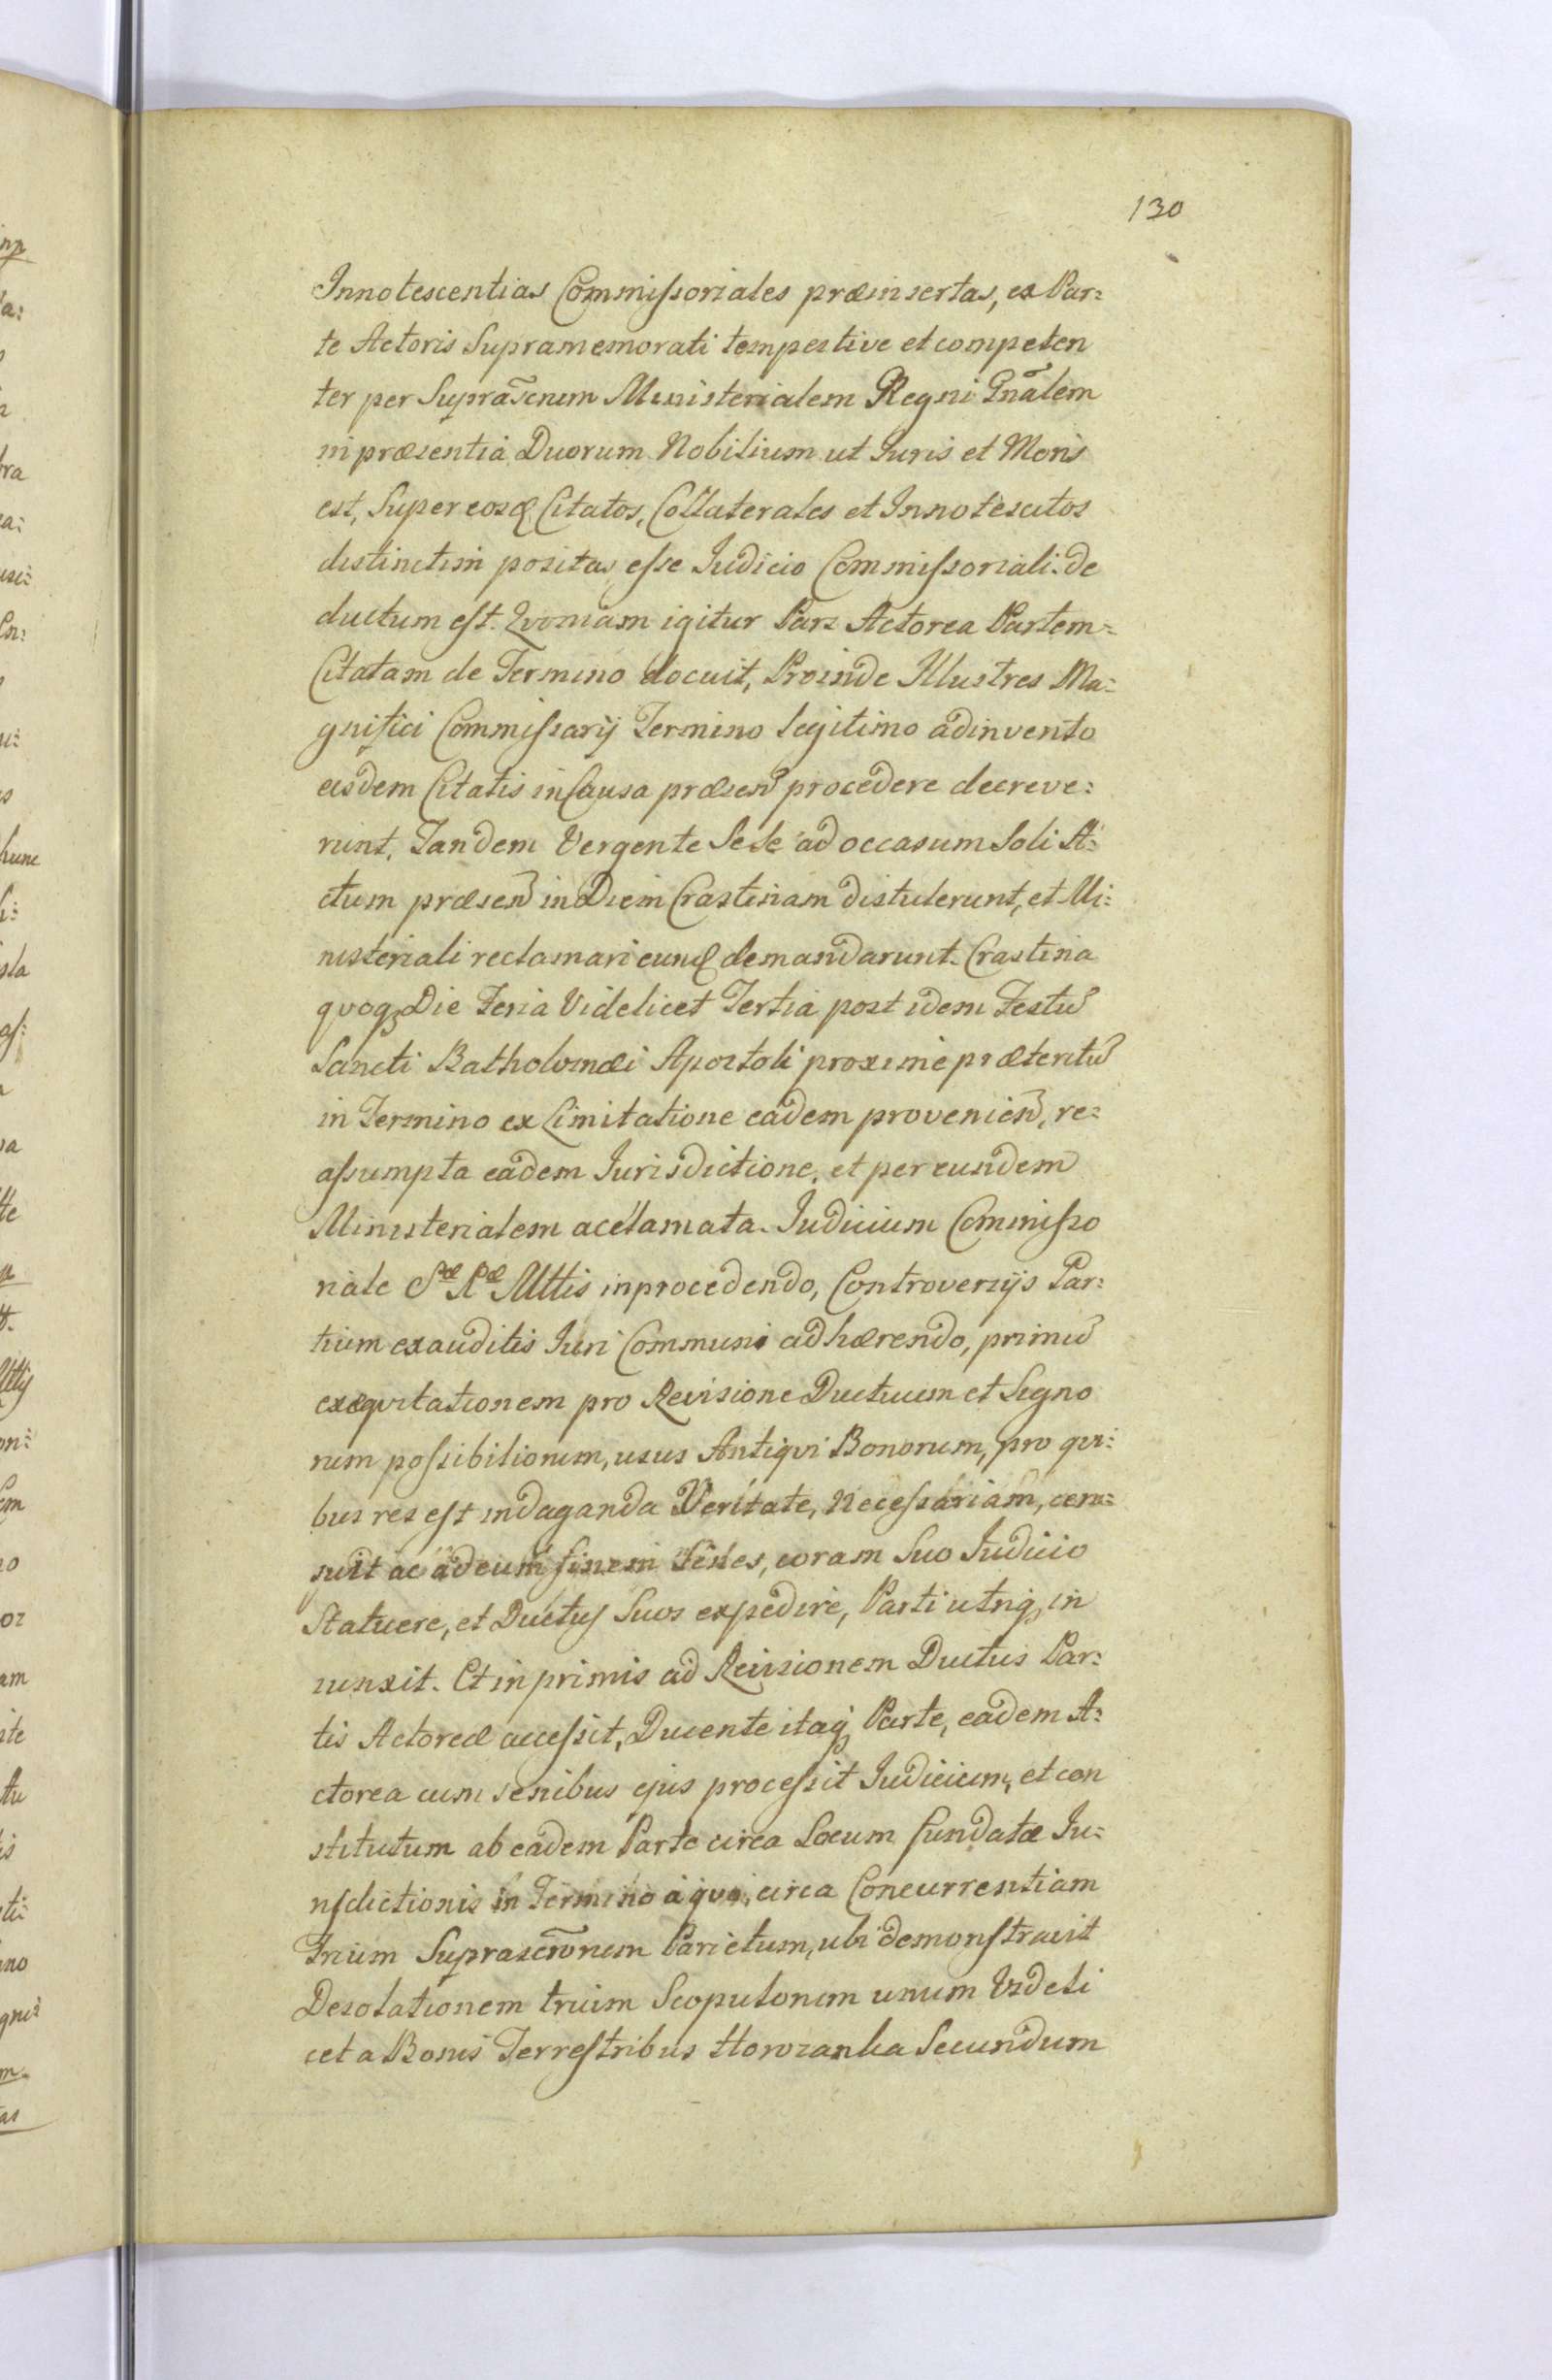 130
Innotescentias Commissoriales præinsertas, ex Par:
te Actoris Supramemorati tempestive et competen
ter per Suprascrum Ministerialem Regni Gnalem
in præsentia Duorum Nobilium ut Iuris et Moris
est, Super eosq Citatos, Collaterales et Innotescitos
distinctim positas esse Iudicio Commissoriali de
ductum est. Qvoniam igitur Pars Actorea Partem
Citatam de Termino docuit, Proinde Illustres Ma:
gnifici Commissarij Termino legitimo adinvento
eisdem Citatis in Causa præsen procedere decreve:
runt, Tandem Vergente Se se ad occasum Soli A:
ctum præsen in Diem Crastinam distulerunt, et Mi:
nisteriali reclamari eunq demandarunt. Crastina
qvoq Die Feria Videlicet Tertia post idem Festu
Sancti Batholomæi Apostoli proxime præteritu
in Termino ex Limitatione eadem provenien, re:
assumpta eadem Iurisdictione, et per eundem
Ministerialem acclamata. Iudicium Commisso
riale Sæ Ræ Mttis in procedendo, Controversijs Par:
tium exauditis Iuri Communi adhærendo, primu
exeqvitationem pro Revisione Ductuum et Signo
rum possibiliorum, usus Antiqvi Bonorum, pro qvi:
bus res est indaganda Veritate, Necessariam, cen:
suit ac ad eum finem Senes, coram Suo Iudicio
Statuere, et Ductus Suos expedire, Parti utriq in
iunxit. Et in primis ad Revisionem Ductus Par:
tis Actoreæ accessit, Ducente itaq Parte, eadem A:
ctorea cum senibus ejus processit Iudicium, et con
stitutum ab eadem Parte circa Locum fundatæ Iu:
risdictionis in Termino a qvo, circa Concurrentiam
Trium Suprascrorum Parietum, ubi demonstravit
Desolationem trium Scopulorum unum Videli
cet a Bonis Terrestribus Horozanka Secundum